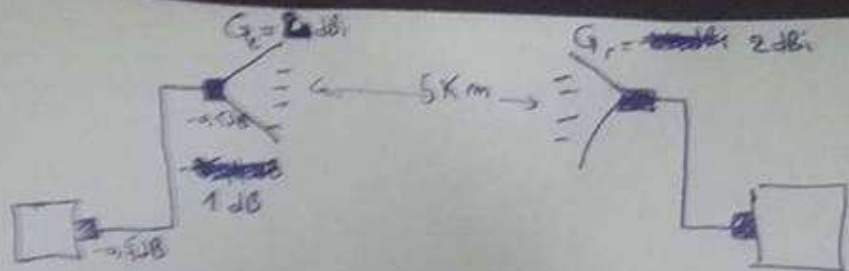 Ge = dBi
Gr = 2 dBi
5 Km
-0,5dB
1 dB
-0,5dB